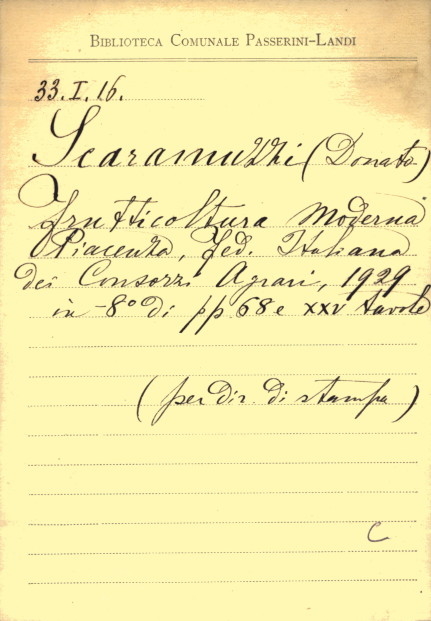 BIBLIOTECA COMUNALE PASSERINI-LANDI
33.I.16.
Scaramuzzi (Donato)
Frutticoltura Moderna
Piacenza, Fed. Italiana
dei Consorzi Agrari, 1929
in-8° di pp. 68 e XXV tavole
(per dir. di stampa)
C